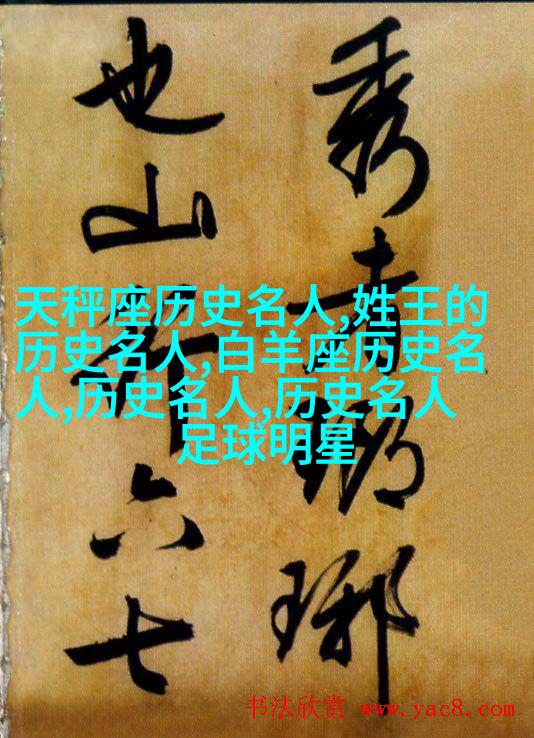 秀者琅琊
也山行六七
天秤座历史名人,姓王的
历史名人,白羊座历史名
人,历史名人,历史名人
足球明星
书法欣赏 www.yac8.com